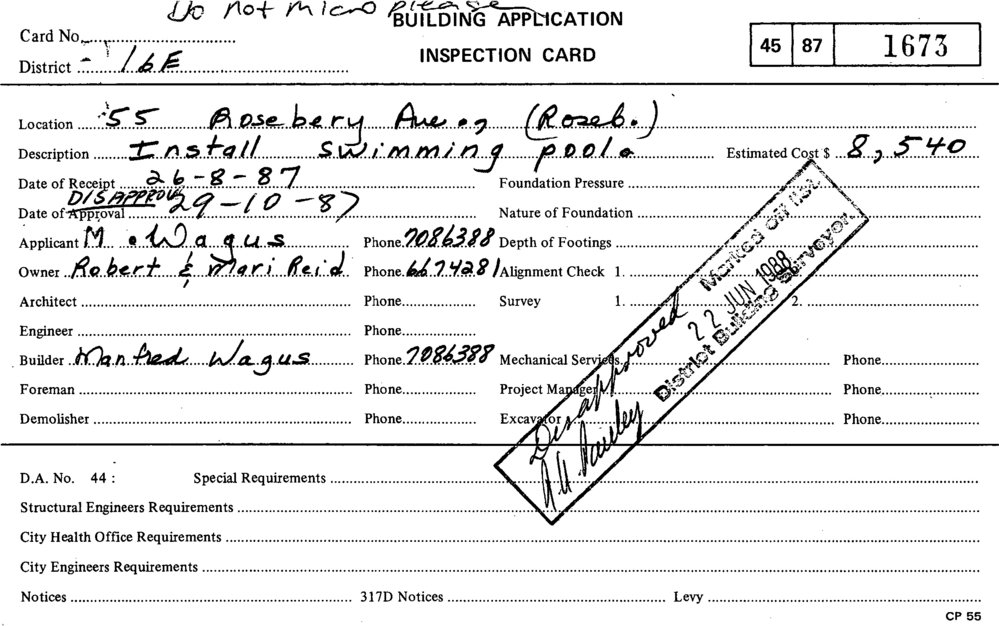 Do not micro please
BUILDING APPLICATION
Card No.
INSPECTION CARD
45 87 1673
District 16E
Location 55 Rosebery Ave., (Roseb.)
Description Install swimming pool. Estimated Cost $ 8,540
Date of Receipt 26-8-87 Foundation Pressure
DISAPPROVAL
Date of Approval 29-10-87 Nature of Foundation
Applicant M. Wagus Phone 7086388 Depth of Footings
Owner Robert & Mari Reid Phone 6674281 Alignment Check 1.
Architect Phone Survey 1. 2.
Engineer Phone
Builder Manfred Wagus Phone 7086388 Mechanical Services Phone
Foreman Phone Project Manager Phone
Demolisher Phone Excavator Phone
Marked off list
22 JUN 1988
District Building Surveyor
Disapproved
D.A. No. 44 : Special Requirements
Structural Engineers Requirements
City Health Office Requirements
City Engineers Requirements
Notices 317D Notices Levy
CP 55